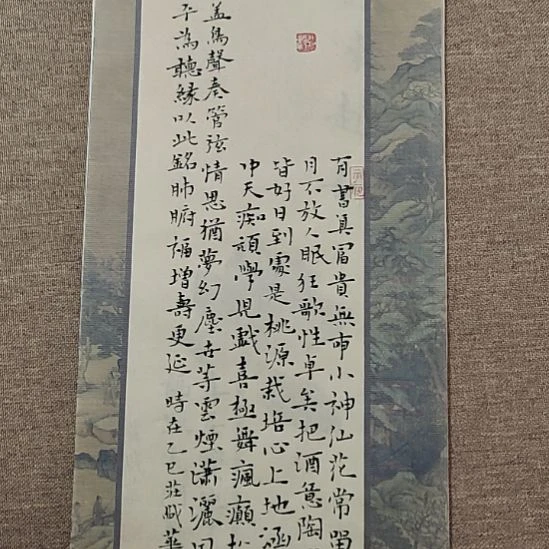 有書真富貴無事小神仙花常留
月不放人眠狂歌性卓矣把酒意陶
皆好日到處是桃源栽培心上地涵
沖天痴頑學兒戲喜極舞瘋癲松
蓋為聲奏管弦情思猶夢幻塵世等雲煙瀟灑
平為聽緣以此銘肺腑福增壽更延 時在乙巳莊